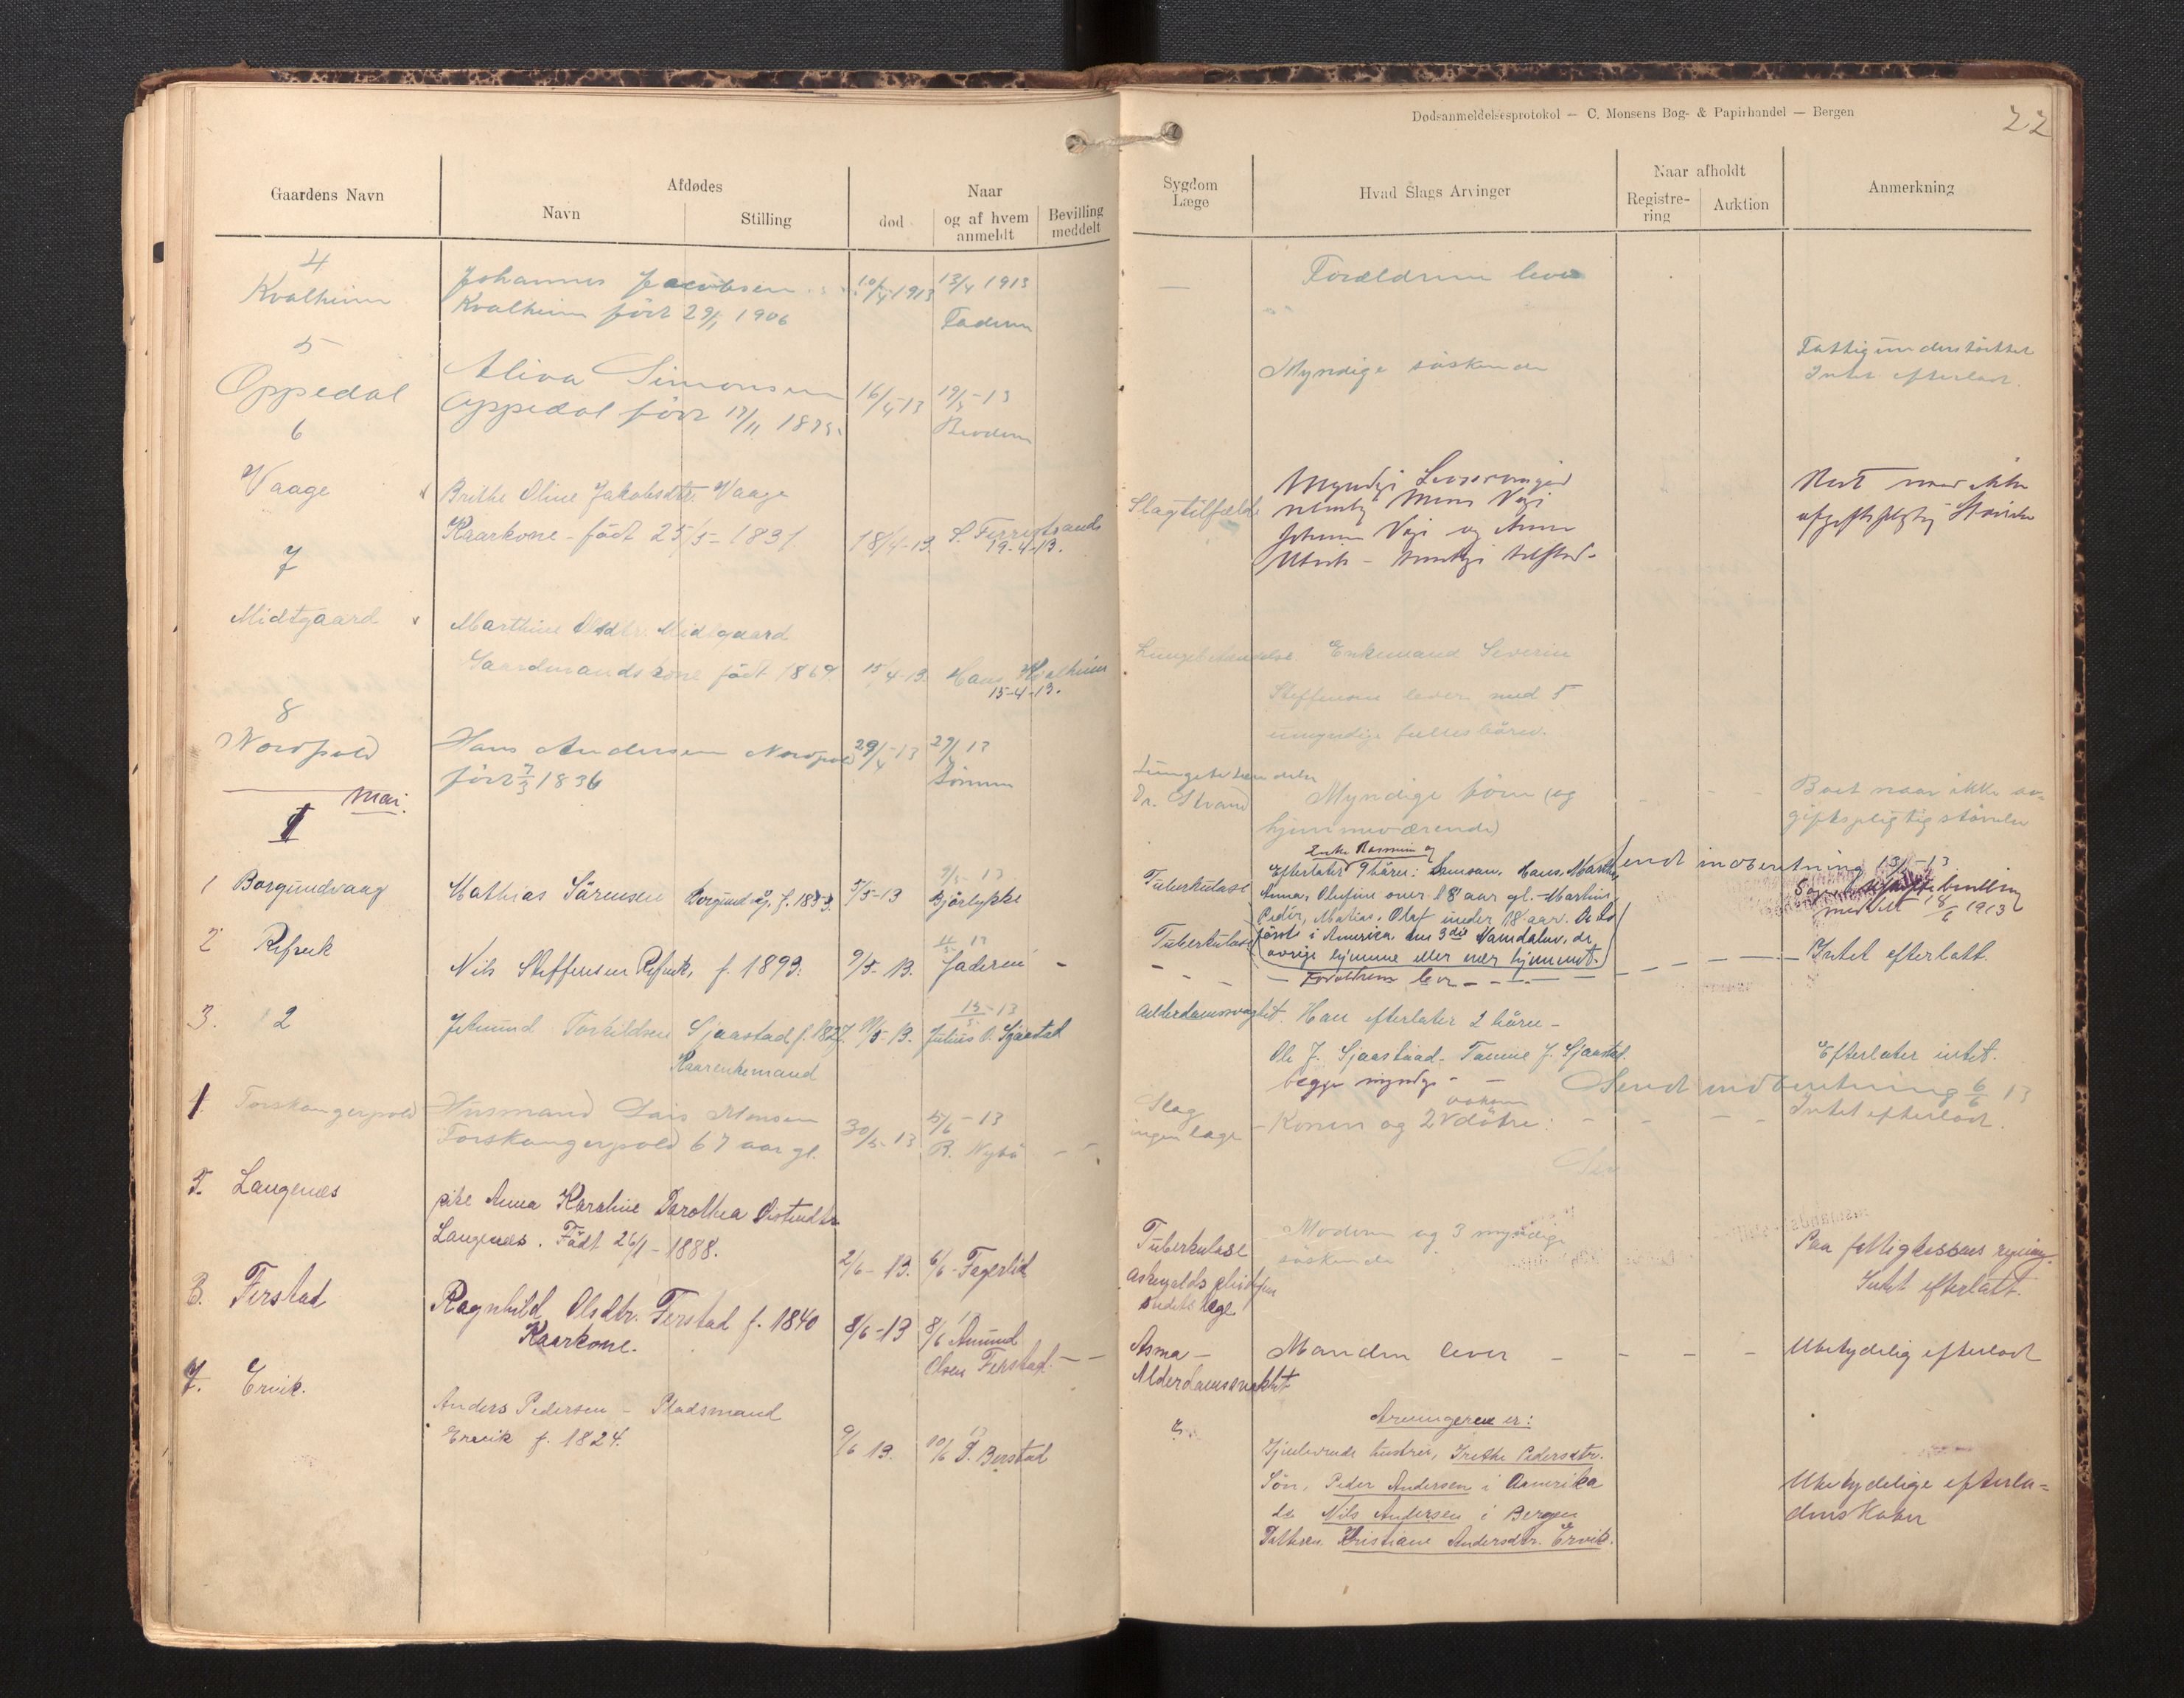 Dødsanmeldelsesprotokol — C. Monsens Bog- & Papirhandel — Bergen
22
Gaardens Navn
Afdødes
Navn
Stilling
Naar
død
og af hvem anmeldt
Bevilling meddelt
Sygdom
Læge
Hvad Slags Arvinger
Naar afholdt
Registre-
ring
Auktion
Anmerkning
4
Kvalheim
Johannes Jacobsen
Kvalheim född 29/1 1906
10/4 1913
13/4 1913
Faderen
—
Forældrene lever
5
Oppedal
Alina Simonsen
Oppedal född 17/11
16/4-13
19/4-13
Broderen
Myndige söskende
Fattigunderstöttet
Intet efterladt.
6
Vaage
Brithe Oline Jakobsdtr. Vaage
Kaarkone - födt 25/5 - 1831
18/4-13.
S. Ferrestrand
19-4-13.
Slagtilfælde
Myndige Livsarvinger
nemlig Mons
og Anna
naar ikke
afgiftspligtig Störrelse
7
Midtgaard
Marthine Olsdtr. Midtgaard
Gaardmandskone födt 1869.
15/4-13.
Hans Kvalheim
15-4-13.
Lungebetændelse
Enkemand Severin
Steffensen lever med 5
umyndige fællesbörn.
8
Nordpold
Hans Andersen Nordpold
född 7/3 1836
29/4-13
29/4 13
Sönnen
Lungebetændelse
Dr. Strand
Myndige börn (og
hjemmeværende)
Boet naar ikke av-
giftspligtig störrelse
Mai.
1 Borgundvaag
Mathias Sörensen Borgundvåg. f. 1853.
5/5-13
9/5-13
Björlykke
Tuberkulose
Enke Rasmine og
Efterlater 9 börn: Hans, Marthe,
Anna, Olufine over 18 aar gl. - Martin,
Peder, Matias, Olaf under 18 aar. De to
förste i America, den 3die Namdalen, de
övrige hjemme eller nær hjemmet.
Sendt indberetning 13/5-13
meddelt 18/6 1913
2 Refvik
Nils Steffensen Refvik, f. 1893.
9/5-13.
Faderen -
Tuberkulose
- Forældrene lever - - -
Intet efterlatt.
3. 2
Torkildsen Sjaastad f. 1827.
Kaarenkemand
13/5-13
Julius O. Sjaastad
Alderdomssvaghet.
Han efterlater 2 börn -
Ole J. Sjaastad - J. Sjaastad.
begge myndige - -
Efterlater intet.
Sendt indberetning 6/6 13
Torskangerpold
Husmand Lars Monsen
Torskangerpold 67 aar gl.
30/5-13
5/6-13
R. Nybö
Slag
ingen læge
Konen og 2 voksne dötre:
Intet efterladt.
Langenes
pike Anna Karoline Dorothea
Langenes. Födt 26/1 - 1888.
2/6-13.
6/6 - Fagerlid
Tuberkulose
Moderen og 3 myndige
söskende
Paa fattigkassens regning.
Intet efterlatt.
Ferstad
Ragnhild Olsdtr. Ferstad f. 1840
Kaarkone.
8/6-13
8/6 13 Amund
Olsen Ferstad. - -
Asma -
Alderdomssvakhet
Manden lever - - - -
Ubetydelig efterladt
Ervik.
Anders Pedersen - Pladsmand
Ervik f. 1824.
9/6 13.
10/6 13 Berstad
Arvingerne er:
Gjenlevende hustru, Grethe Pedersdtr.
Sön, Peder Andersen i Amerika
do Nils Andersen i Bergen
Datteren Kristiane Andersdtr. Ervik.
Ubetydelige efterla-
denskaber